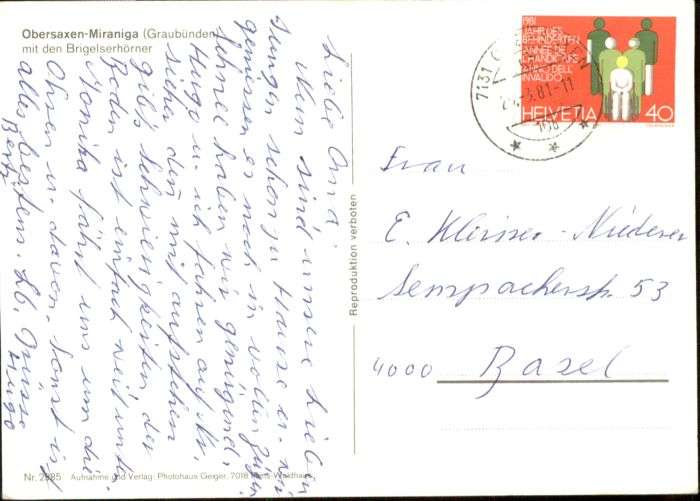 Obersaxen-Miraniga (Graubünden)
mit den Brigelserhörner
Liebe Oma!
Nun sind unsere Lieben
Jungen schon zu Hause u. wir
geniessen es noch in vollen Zügen
Schnee haben wir genügend.
Hugo u. ich fahren auf Ski,
sicher den mit aufstehen
gibt's Schwierigkeiten der
Boden ist einfach weit unten
Monika fährt uns um die
Ohren u. davon. Sonst ist
alles bestens. Lb. Grüsse
Hugo
Berty
Reproduktion verboten
1981
JAHR DES BEHINDERTEN
ANNÉE DES HANDICAPÉS
ANNO DELL' INVALIDO
HELVETIA 40
7131
.81-11
Frau
E. Niederer
Sempacherstr. 53
4000 Basel
Nr. 2985 Aufnahme und Verlag: Photohaus Geiger, 7018 Flims-Waldhaus